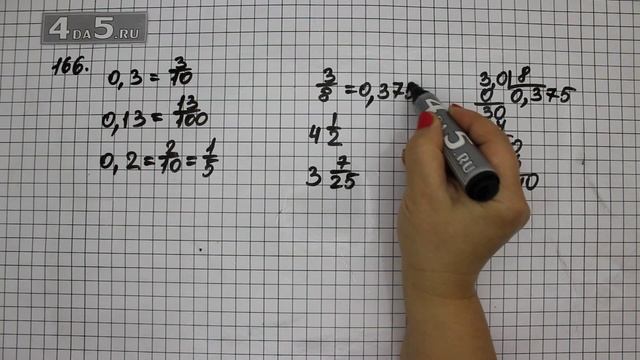 4ДА5.RU
166.
0,3 = 3/10
0,13 = 13/100
0,2 = 2/10 = 1/5
3/8 = 0,375
4 1/2
3 7/25
3,0 8
0 0,375
30
4 5.RU